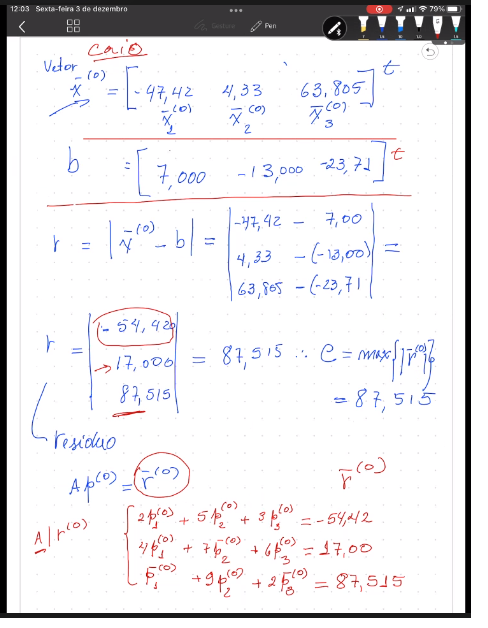 12:03 Sexta-feira 3 de dezembro
79%
Pen
Caio
Vetor
x̄^(0) = [-47,42 4,33 63,805]^t
x̄_1^(0) x̄_2^(0) x̄_3^(0)
b = [7,000 -13,000 -23,71]^t
r = |x̄^(0) - b| = |-47,42 - 7,00
4,33 - (-13,00)
63,805 - (-23,71| =
r = |-54,420
→17,000
87,515| = 87,515 ∴ e = max{|r̄^(0)|}
= 87,515
resíduo
Ap^(0) = r̄^(0) r̄^(0)
A|r^(0) { 2p_1^(0) + 5p_2^(0) + 3p_3^(0) = -54,42
4p_1^(0) + 7p_2^(0) + 6p_3^(0) = 17,00
p_1^(0) + 9p_2^(0) + 2p_3^(0) = 87,515